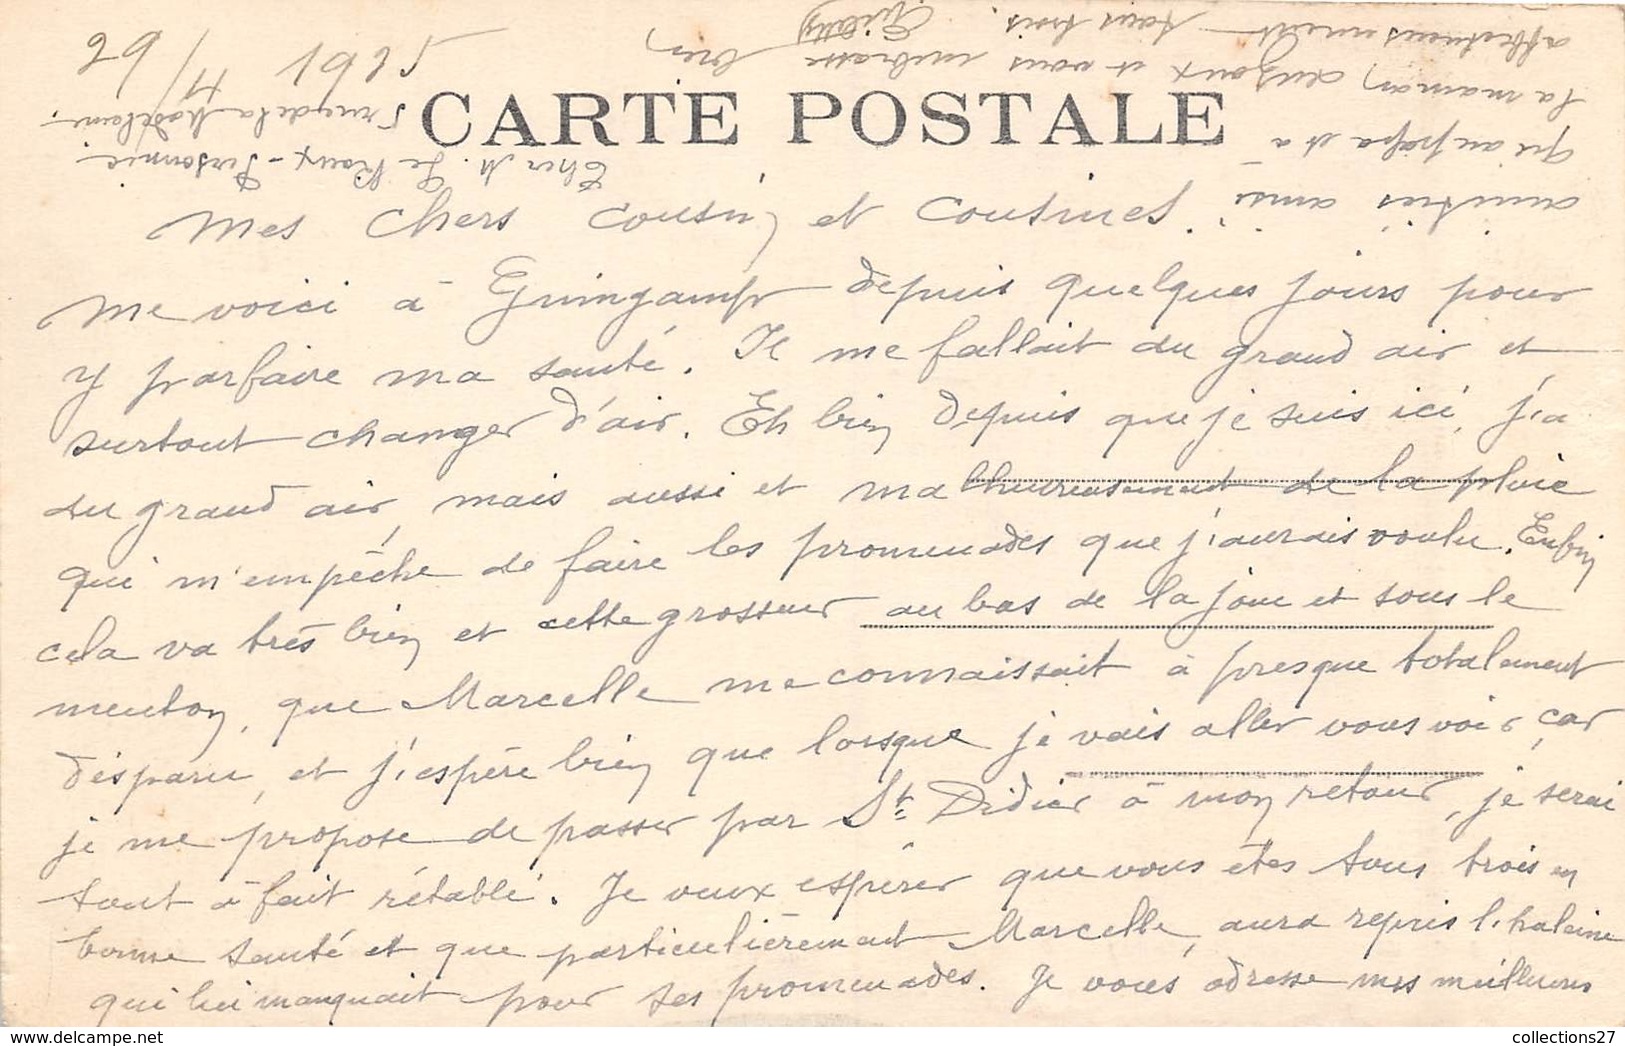 29/4 1925
5 rue de la Madeleine
Cher M. Le Roux - Personnic
CARTE POSTALE
Mes chers cousin et cousines.
Me voici à Guingamp depuis quelques jours pour
y parfaire ma santé. Il me fallait du grand air et
surtout changer d'air. Eh bien depuis que je suis ici, j'a
du grand air, mais aussi et malheureusement de la pluie
qui m'empêche de faire les promenades que j'aurais voulu. Enfin
cela va très bien et cette grosseur au bas de la joue et sous le
menton, que Marcelle me connaissait à presque totalement
disparu, et j'espère bien que lorsque je vais aller vous voir, car
je me propose de passer par St Didier à mon retour, je serai
tout à fait rétabli. Je veux espérer que vous êtes tous trois en
bonne santé et que particulièrement Marcelle, aura repris l'haleine
qui lui manquait pour ses promenades. Je vous adresse mes meilleures
amitiés ainsi
qu'au papa et à
la maman et vous embrasse bien
affectueusement tous trois.
collections27